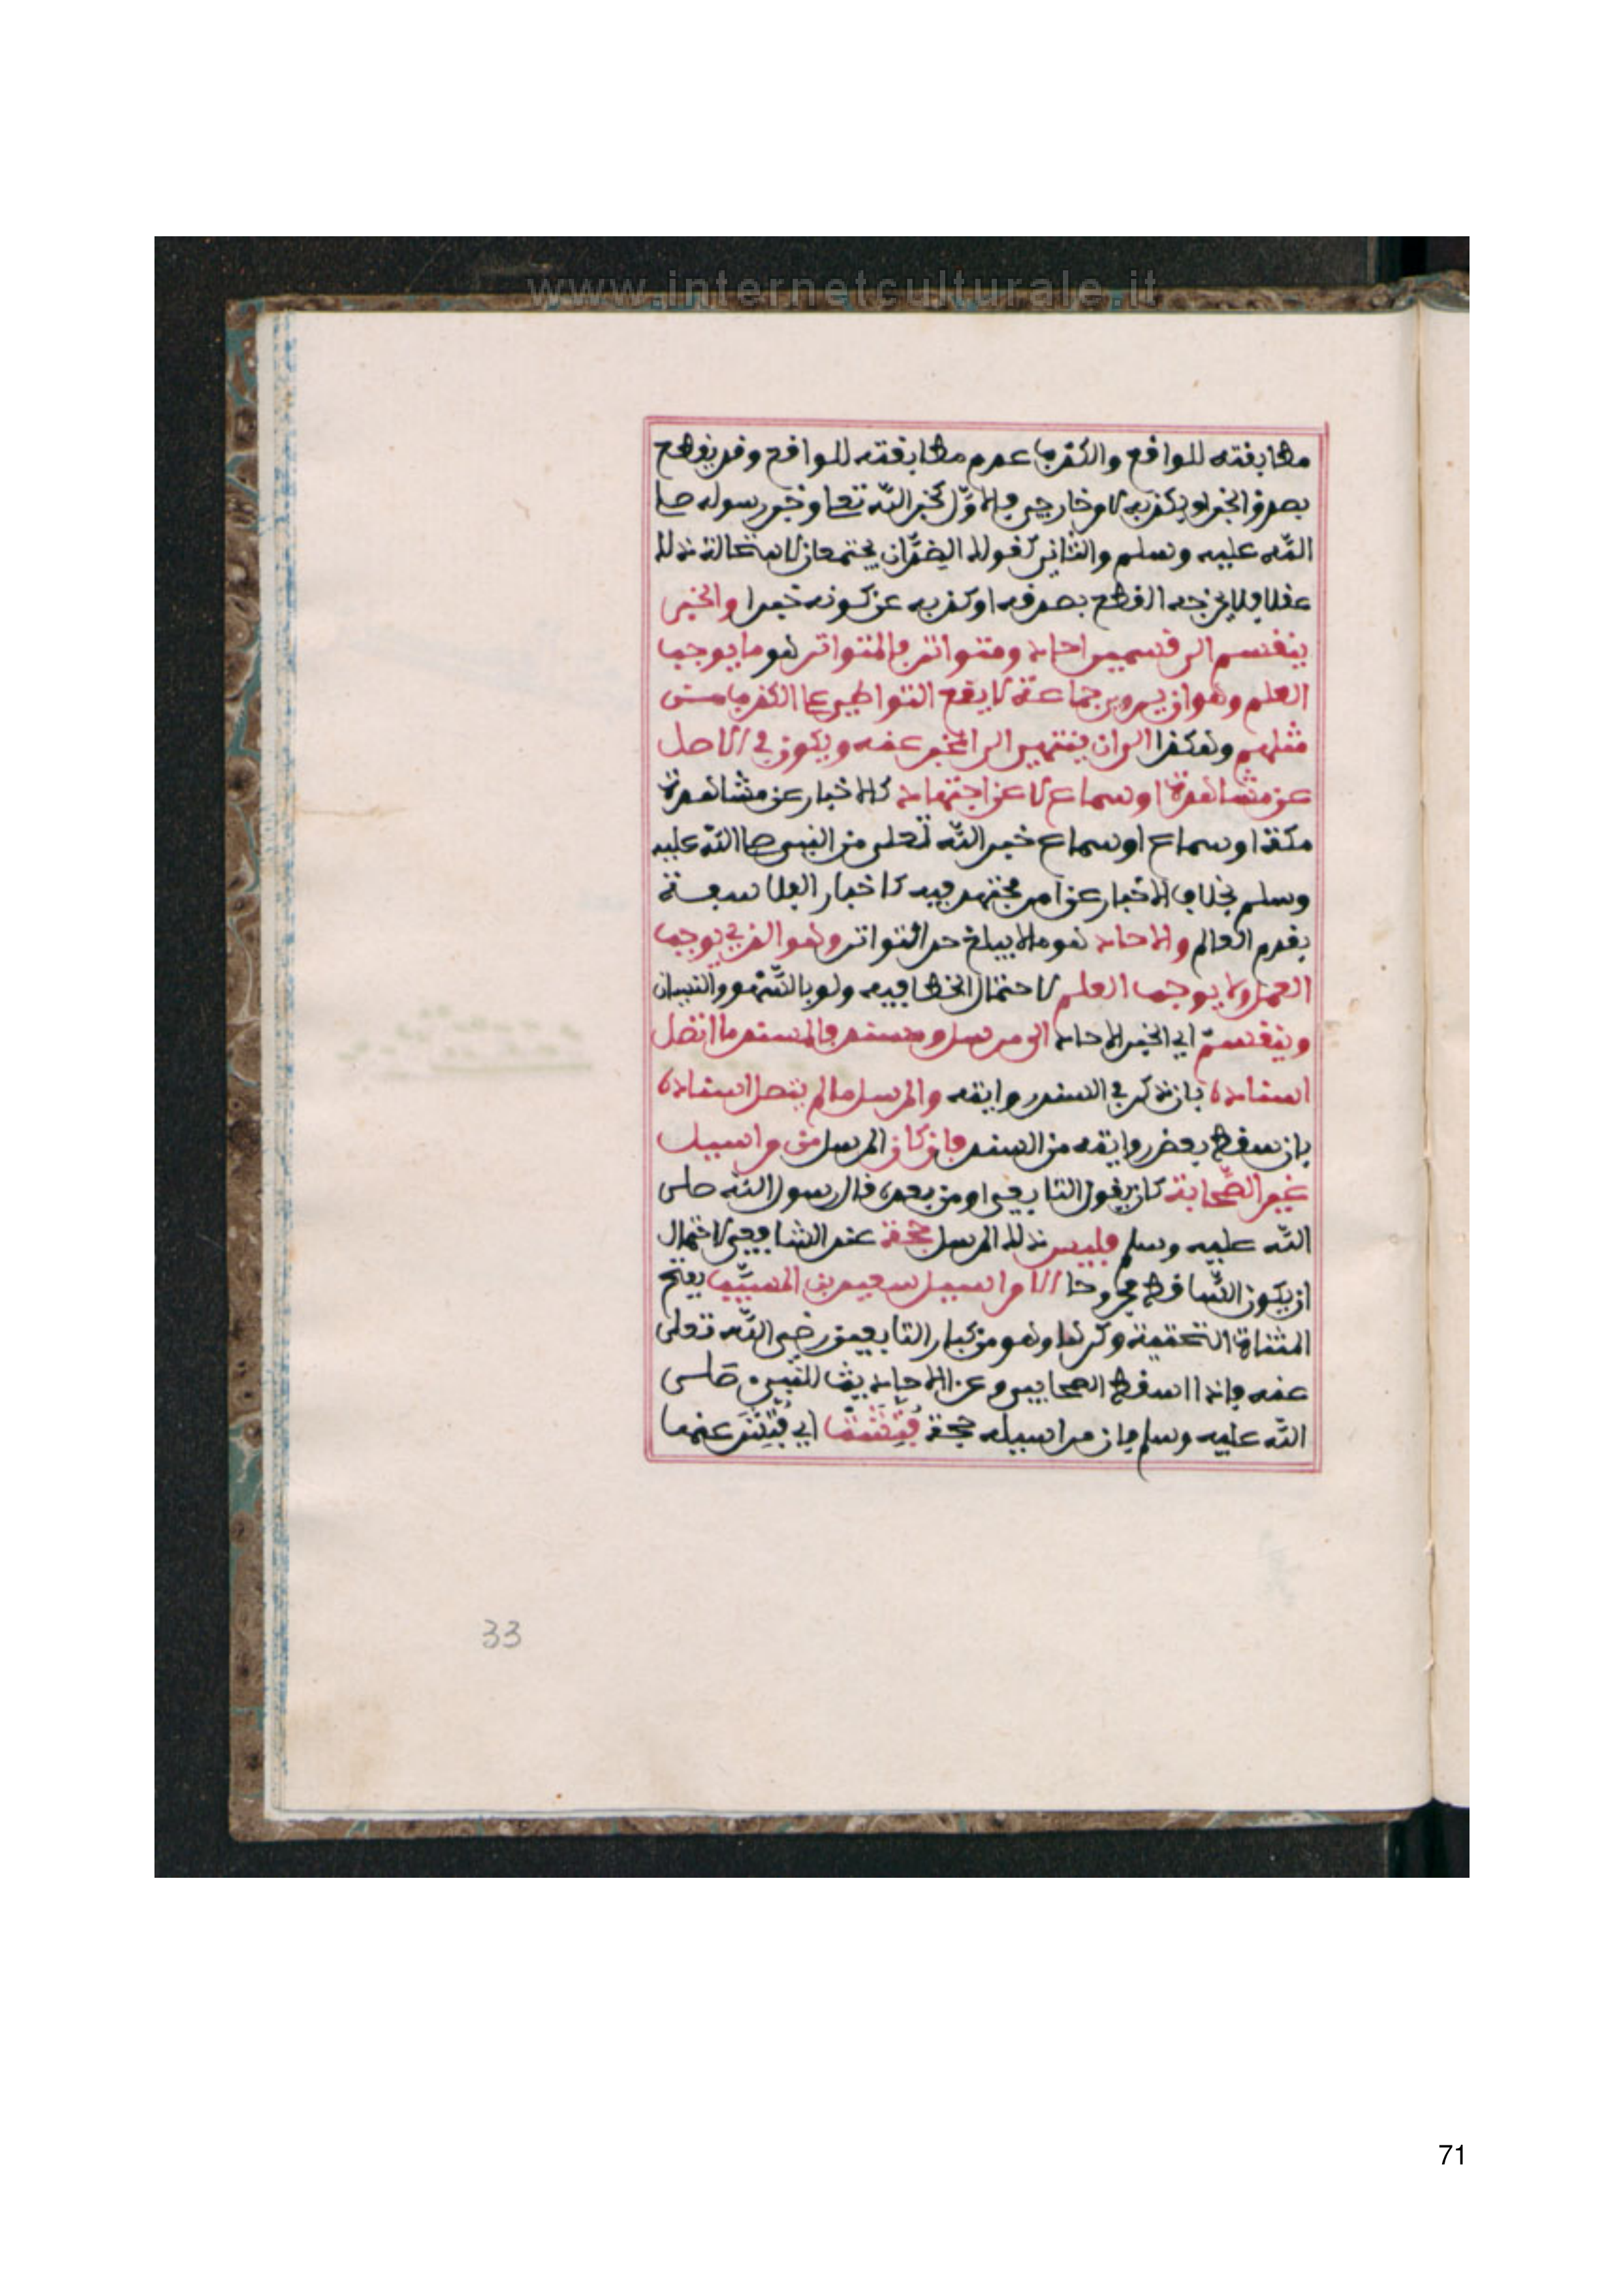 www.internetculturale.it
مطابقته للواقع والكذب عدم مطابقته للواقع وقد يقطع
بصدق الخبر او بكذبه لامر خارجي فالاوّل كخبر الله تعا وخبر رسوله صلى
الله عليه وسلم والثاني كقولك الضدّان يجتمعان لاستحالة ذلك
عقلا فلا يخرجه القطع بصدقه او كذبه عن كونه خبرا والخبر
ينقسم الى قسمين احاد ومتواتر فالمتواتر هو ما يوجب
العلم وهو ان يروي جماعة لا يقع التواطي على الكذب من
مثلهم وهكذا الى ان ينتهي الى المخبر عنه ويكون في الاصل
عن مشاهدة او سماع لا عن اجتهاد كالاخبار عن مشاهدة
مكة او سماع او سماع خبر الله تعلى من النبي صلى الله عليه
وسلم بخلاف الاخبار عن امر مجتهد فيه كاخبار الفلاسفة
بقدم العالم والاحاد هو ما لا يبلغ حد التواتر وهو الذي يوجب
العمل ولا يوجب العلم لاحتمال الخطا فيه ولو بالسّهو والنسيان
وينقسم اي الخبر الاحاد الى مرسل ومسند فالمسند ما اتصل
اسناده بان ذكر في السند رواته والمرسل ما لم يتصل اسناده
بان سقط بعض رواته من السند فان كان المرسل من مراسيل
غير الصّحابة كان يقول التابعي او من بعده قال رسول الله صلى
الله عليه وسلم فليس ذلك المرسل بحجة عند الشافعي لاحتمال
ان يكون السّاقط مجروحا الا مراسيل سعيد بن المسيّب بفتح
المثناة التحتية وكرها وهو من كبار التابعين رضي الله تعلى
عنه فاذا اسقط الصحابي وعن الاحاديث للنبيء صلى
الله عليه وسلم فان مراسيله حجة فُتِّشَت اي فُتِّشَ عنها
33
71